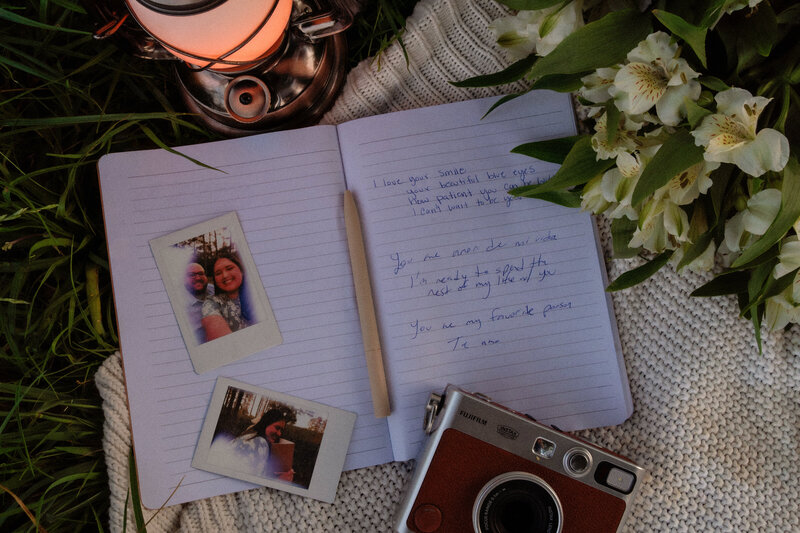 I love your smile
your beautiful blue eyes
How patient you can be
I can't want to be your
You are amor de mi vida
I'm ready to spend the
rest of my life w/ you
You're my favorite person
Te amo
FUJIFILM